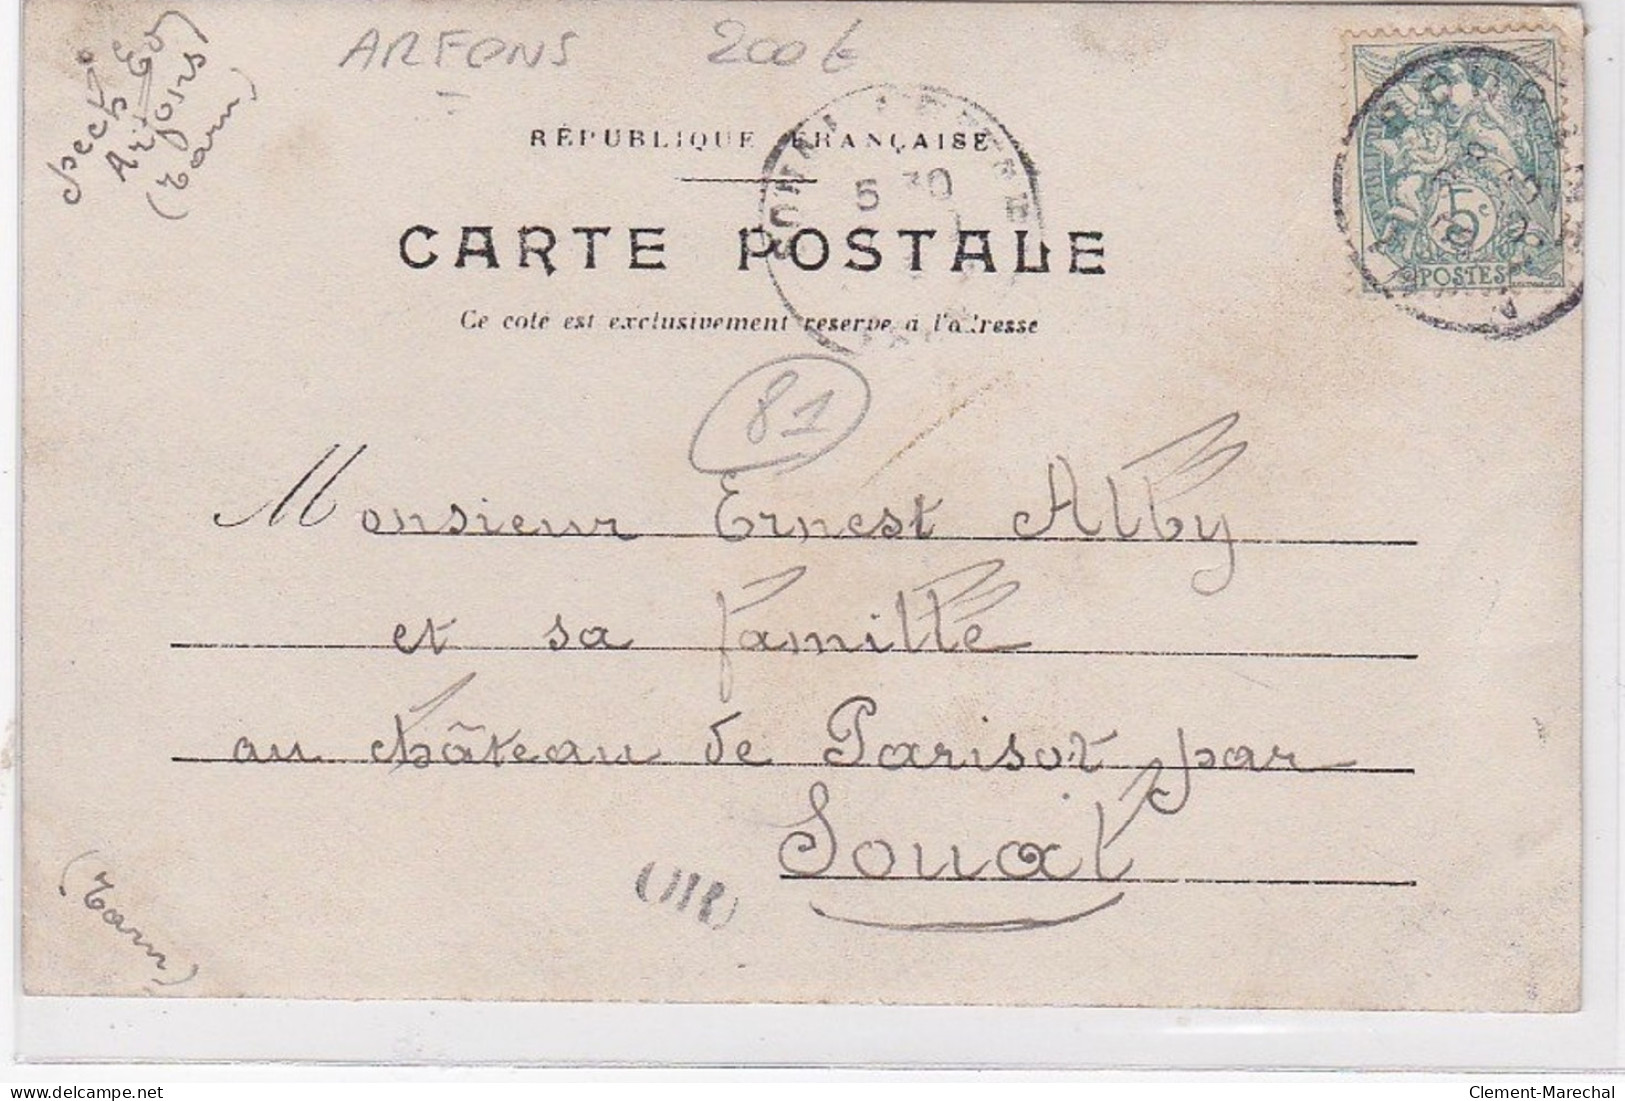 ARFONS 200 €
Arfons
(Tarn)
RÉPUBLIQUE FRANÇAISE
5 30
CARTE POSTALE
Ce coté est exclusivement réservé à l'adresse
5c
POSTES
81
Monsieur Ernest Alby
et sa famille
au château de Parisot par
Soual
(Tarn)
delcampe.net
Clement-Marechal